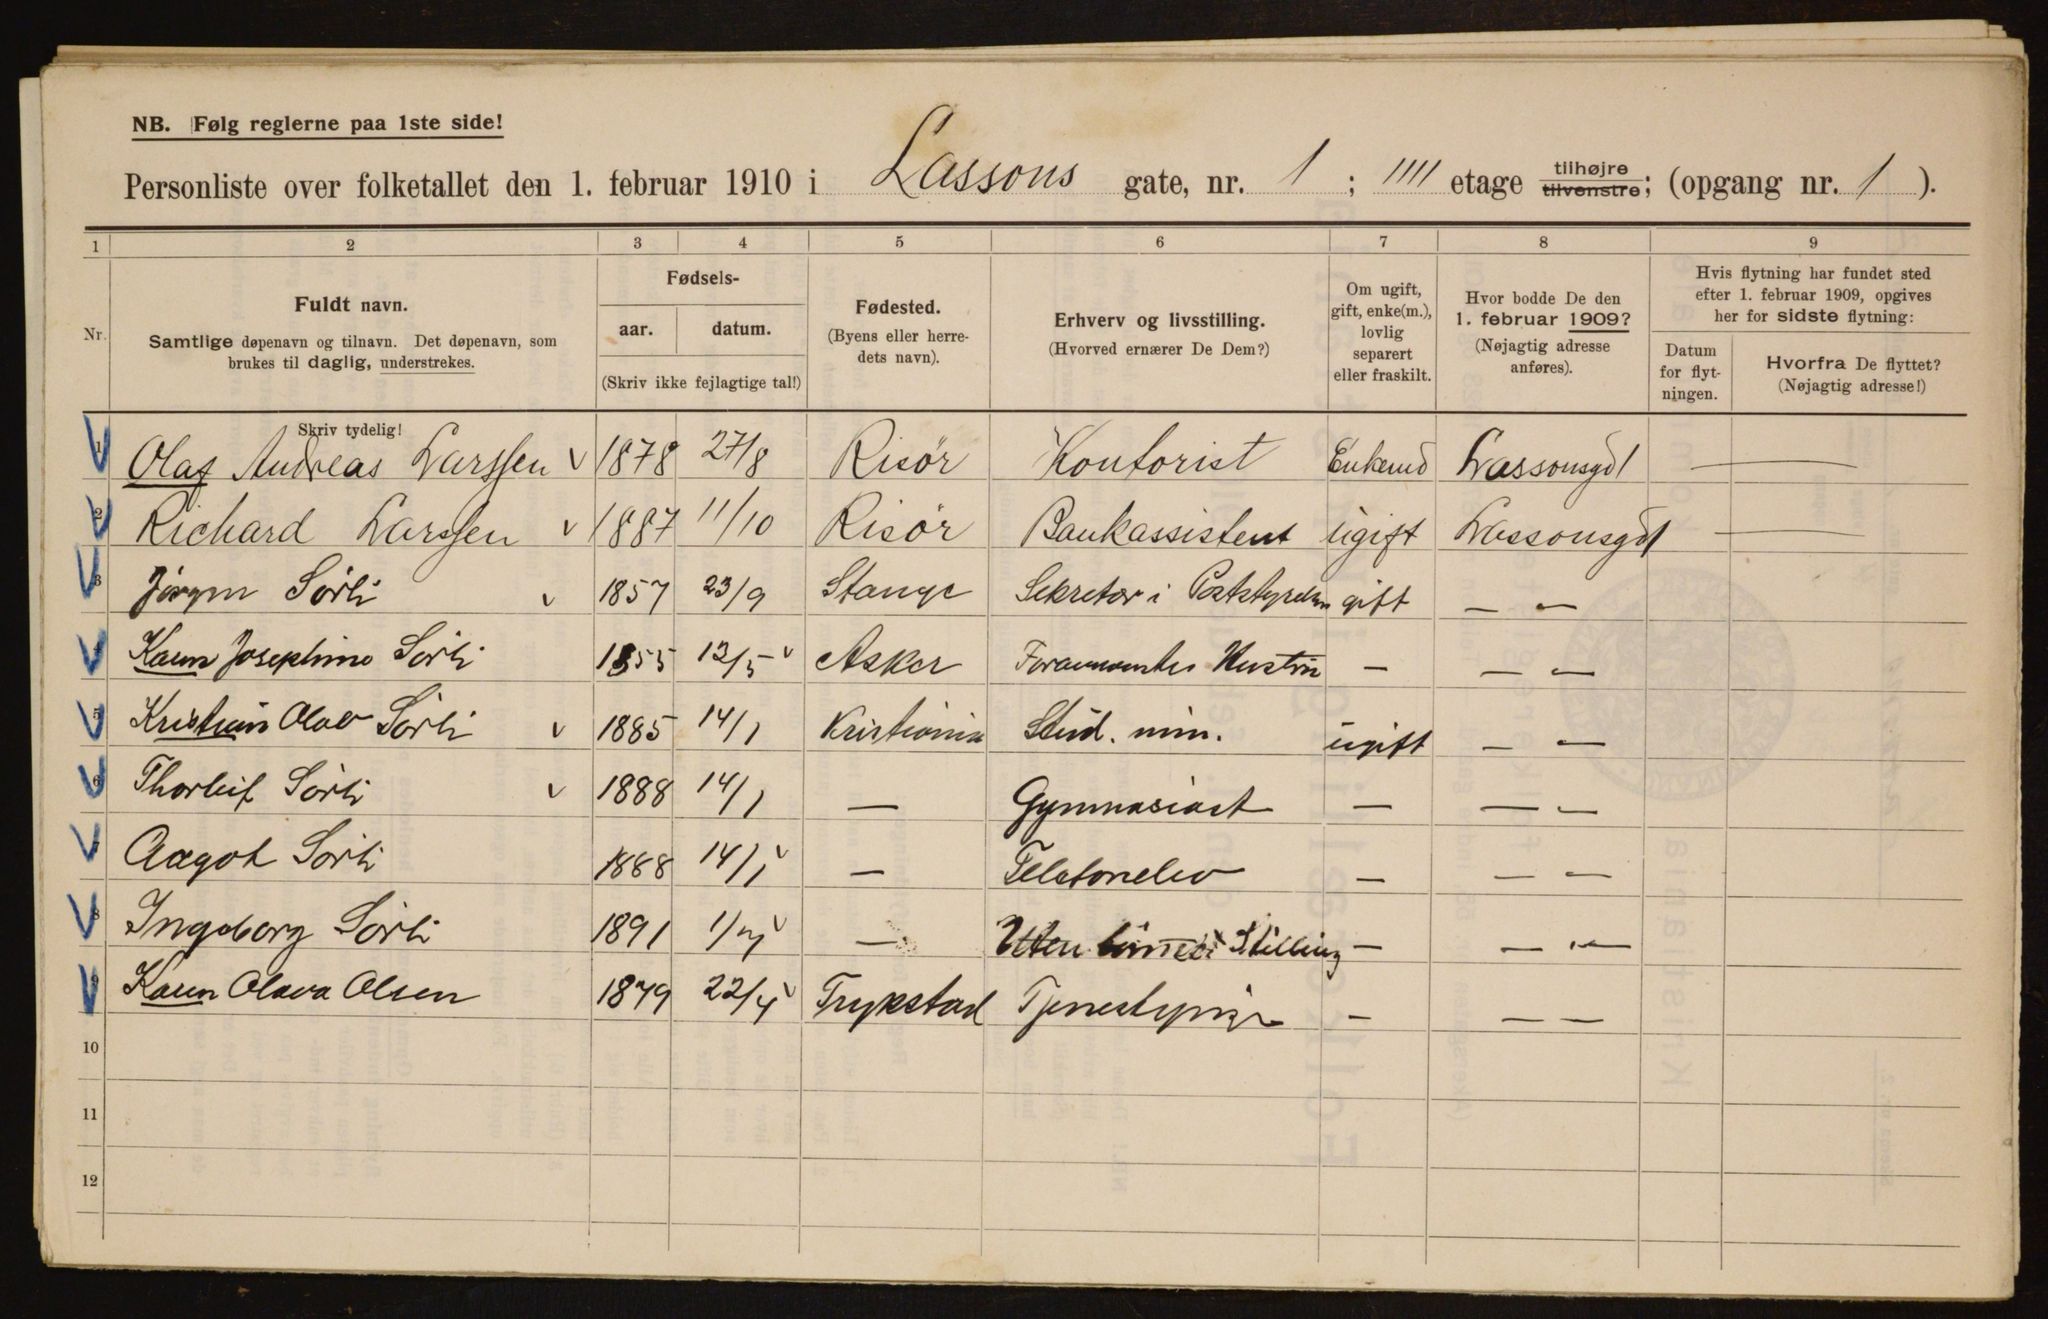 NB. Følg reglerne paa 1ste side!
Personliste over folketallet den 1. februar 1910 i Lassons gate, nr. 1 ; IIII etage tilhøjre tilvenstre; (opgang nr. 1 ).
1 2 3 4 5 6 7 8 9
Nr. Fuldt navn. Samtlige døpenavn og tilnavn. Det døpenavn, som brukes til daglig, understrekes.
Fødsels- aar. datum. (Skriv ikke fejlagtige tal!)
Fødested. (Byens eller herredets navn).
Erhverv og livsstilling. (Hvorved ernærer De Dem?)
Om ugift, gift, enke(m.), lovlig separert eller fraskilt.
Hvor bodde De den 1. februar 1909? (Nøjagtig adresse anføres).
Hvis flytning har fundet sted efter 1. februar 1909, opgives her for sidste flytning:
Datum for flytningen.
Hvorfra De flyttet? (Nøjagtig adresse!)
Skriv tydelig!
1 Olaf Andreas Larssen 1878 27/8 Risör Kontorist Enkemd Lassonsgd 1 —
2 Richard Larssen 1887 11/10 Risör Bankassistent ugift Lassonsgd 1 —
3 Jörgen Sörli 1857 23/9 Stange Sekretær i Poststyrelsen gift — —
4 Karen Josephine Sörli 1855 12/5 Asker Forannævntes Hustru — — —
5 Kristian Olav Sörli 1885 14/1 Kristiania Stud. min. ugift — —
6 Thorleif Sörli 1888 14/1 — Gymnasiast — — —
7 Aagot Sörli 1888 14/1 — Telefonelev — — —
8 Ingeborg Sörli 1891 — Uten Stilling — — —
9 Karen Olava Olsen 1879 22/4 Trykstad Tjenestepige — — —
10
11
12